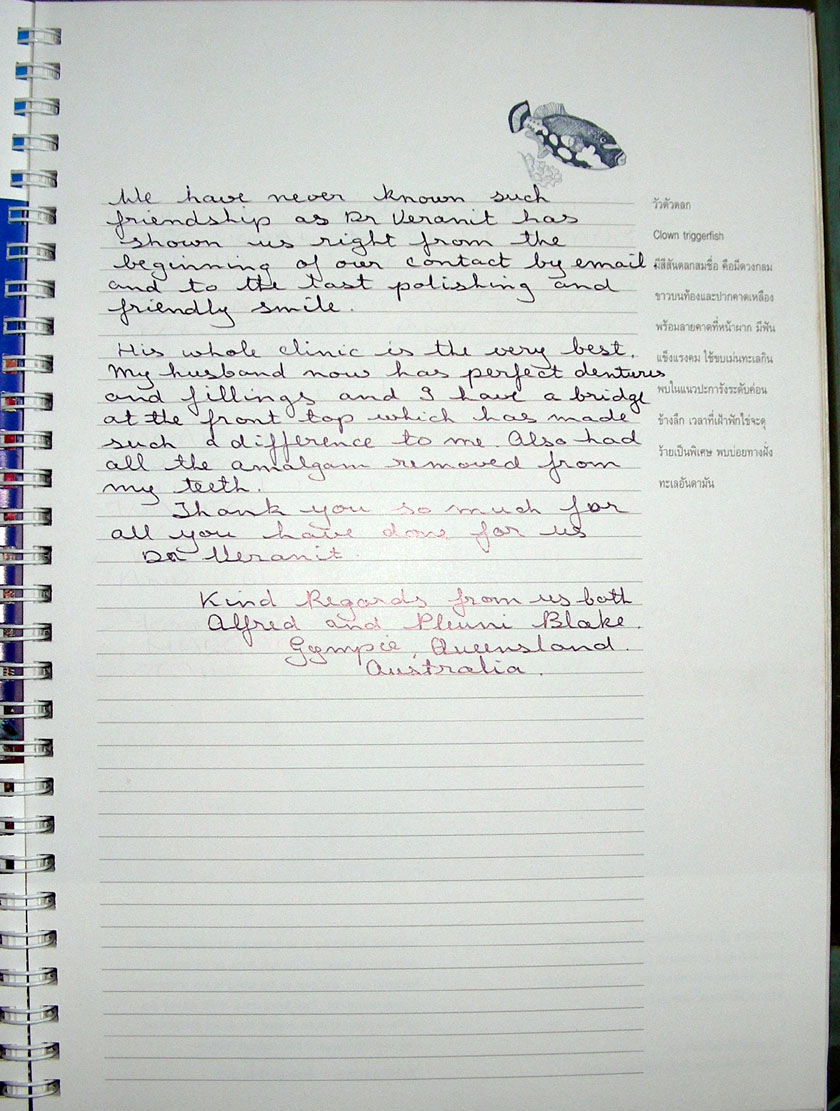 We have never known such
friendship as Dr Veranit has
shown us right from the
beginning of our contact by email
and to the last polishing and
friendly smile.
His whole clinic is the very best.
My husband now has perfect dentures
and fillings and I have a bridge
at the front top which has made
such a difference to me. Also had
all the amalgam removed from
my teeth.
Thank you so much for
all you have done for us
Dr Veranit.
Kind Regards from us both
Alfred and Pleuni Blake.
Gympie, Queensland.
Australia.
วัวตัวตลก
Clown triggerfish
มีสีสันตลกสมชื่อ คือมีดวงกลม
ขาวบนท้องและปากคาดเหลือง
พร้อมลายคาดที่หน้าผาก มีฟัน
แข็งแรงคม ใช้ขบเม่นทะเลกิน
พบในแนวปะการังระดับค่อน
ข้างลึก เวลาที่เฝ้าฟักไข่จะดุ
ร้ายเป็นพิเศษ พบบ่อยทางฝั่ง
ทะเลอันดามัน